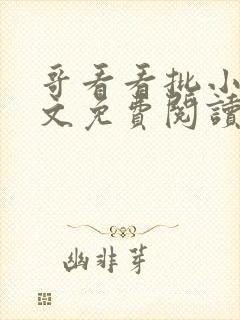 哥看看批小
文免費閱讀
幽非芽